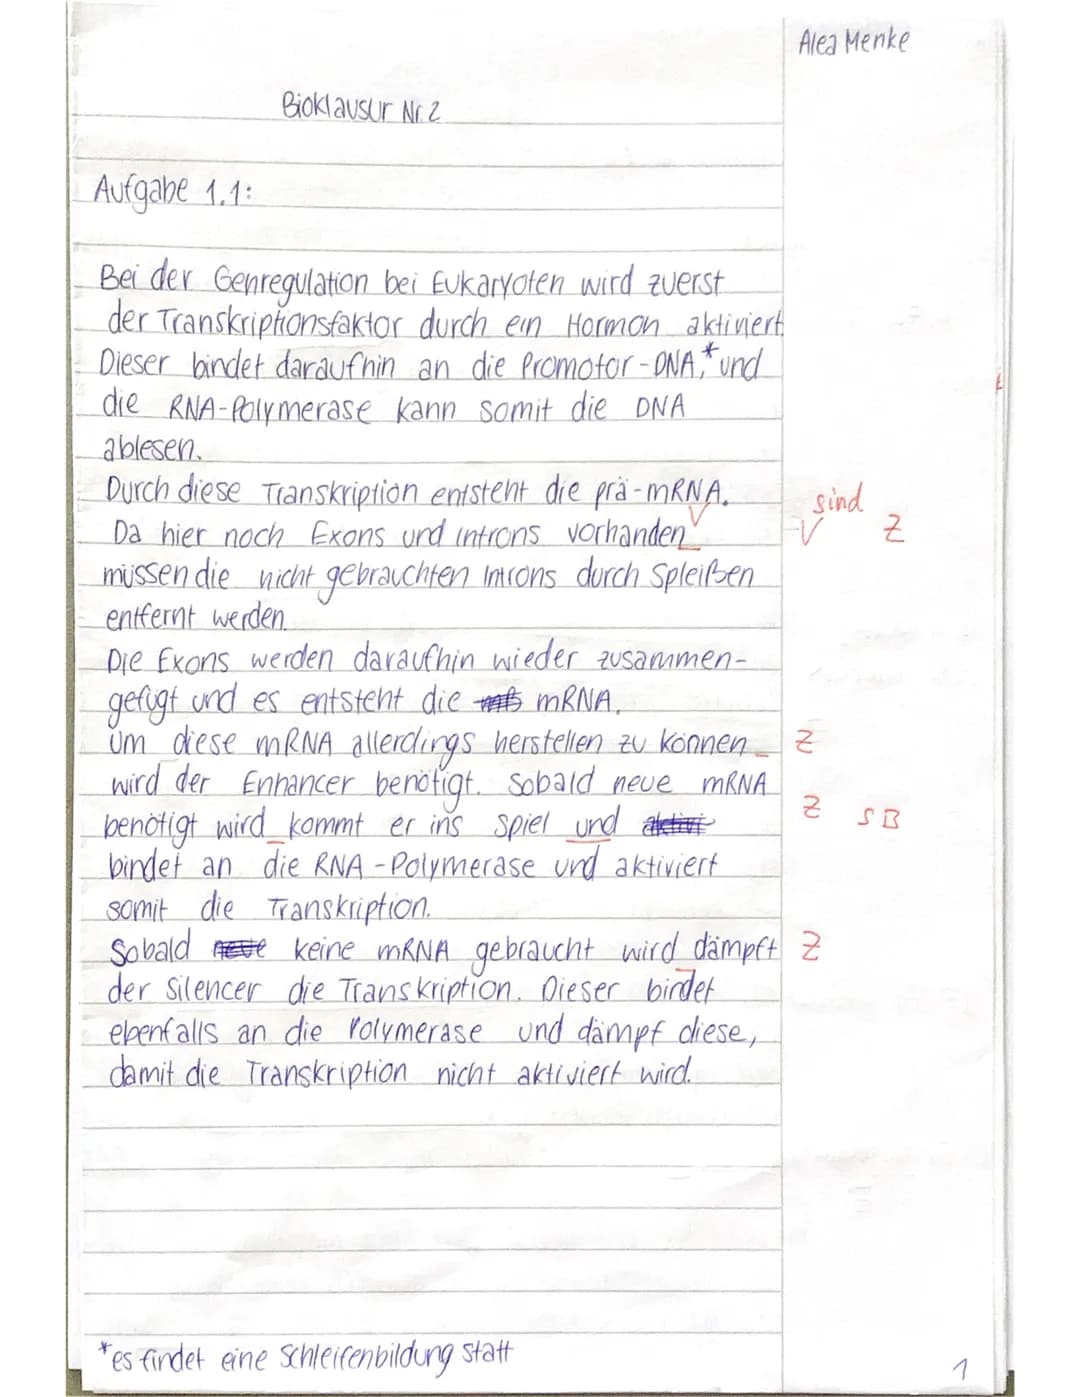 Alea Menke
Bioklausur Nr. 2
Aufgabe 1.1:
Bei der Genregulation bei Eukaryoten wird zuerst
der Transkriptionsfaktor durch ein Hormon aktiviert
Dieser bindet daraufhin an die Promotor-DNA,* und
die RNA-Polymerase kann somit die DNA
ablesen.
Durch diese Transkription entsteht die prä-mRNA.
Da hier noch Exons und Introns vorhanden V sind V Z
müssen die nicht gebrauchten Introns durch Spleißen
entfernt werden.
Die Exons werden daraufhin wieder zusammen-
gefügt und es entsteht die mRNA.
Um diese mRNA allerdings herstellen zu können Z
wird der Enhancer benötigt. Sobald neue mRNA
benötigt wird kommt er ins Spiel und aktivi Z SB
bindet an die RNA-Polymerase und aktiviert
somit die Transkription.
Sobald neue keine mRNA gebraucht wird dämpft Z
der Silencer die Transkription. Dieser bindet
ebenfalls an die Polymerase und dämpf diese,
damit die Transkription nicht aktiviert wird.
*es findet eine Schleifenbildung statt
1